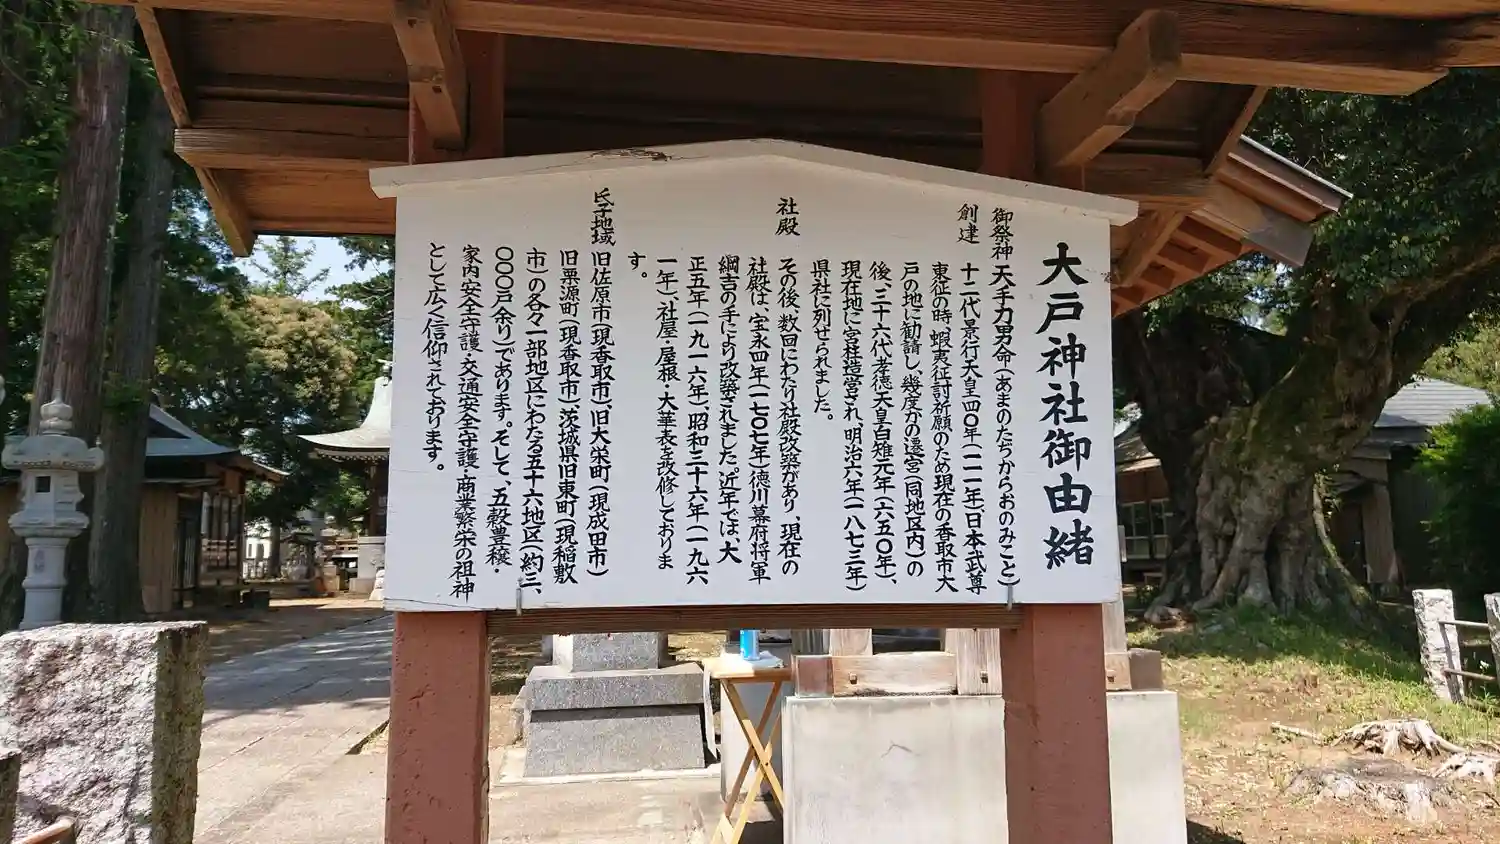 大戸神社御由緒
御祭神 天手力男命(あまのたぢからおのみこと)
創建 十二代景行天皇四〇年(一一一年)、日本武尊
東征の時、蝦夷征討祈願のため現在の香取市大
戸の地に勧請し、幾度かの遷宮(同地区内)の
後、三十六代孝徳天皇白雉元年(六五〇年)、
現在地に宮柱造営され、明治六年(一八七三年)
県社に列せられました。
社殿 その後、数回にわたり社殿改築があり、現在の
社殿は、宝永四年(一七〇七年)徳川幕府将軍
綱吉の手により改築されました。近年では、大
正五年(一九一六年)、昭和三十六年(一九六
一年)、社屋・屋根・大華表を改修しておりま
す。
氏子地域 旧佐原市(現香取市)旧大栄町(現成田市)
旧栗源町(現香取市)、茨城県旧東町(現稲敷
市)の各々一部地区にわたる五十六地区(約三、
〇〇〇戸余り)であります。そして、五穀豊穣・
家内安全守護・交通安全守護・商業繁栄の祖神
として広く信仰されております。